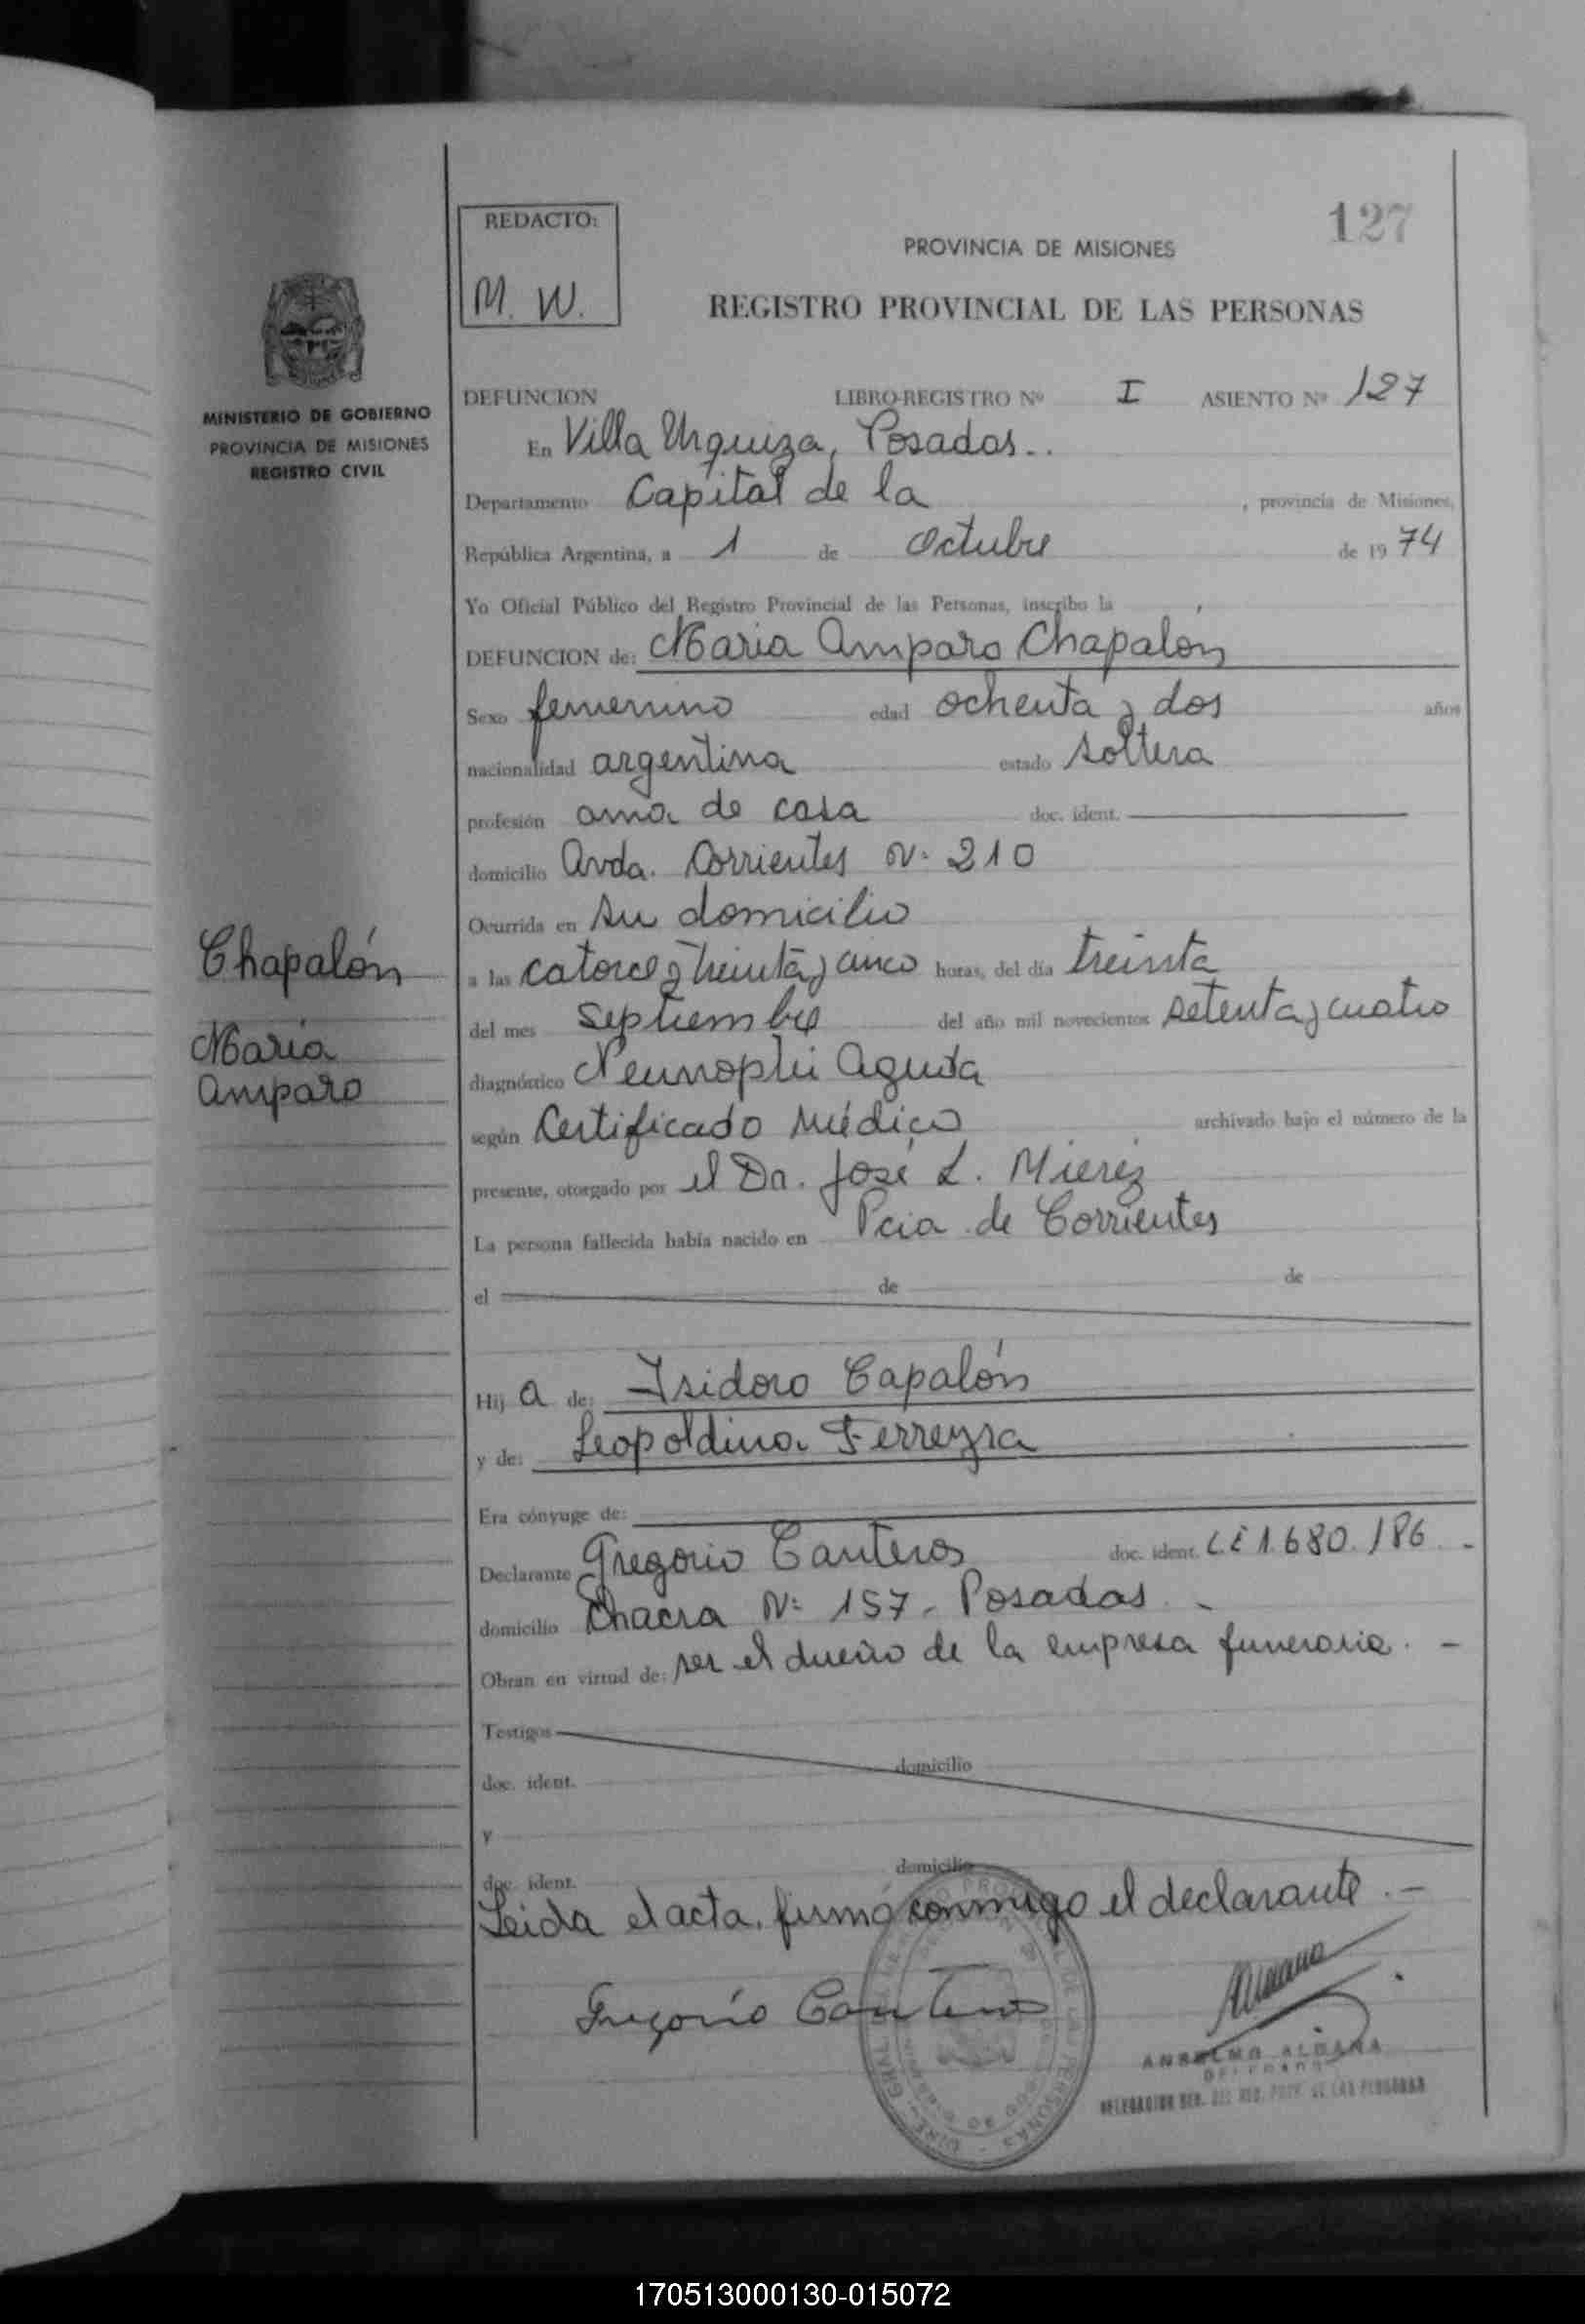 REDACTO:
M. W.
127
PROVINCIA DE MISIONES
REGISTRO PROVINCIAL DE LAS PERSONAS
MINISTERIO DE GOBIERNO
PROVINCIA DE MISIONES
REGISTRO CIVIL
DEFUNCION LIBRO-REGISTRO Nº I ASIENTO Nº 127
En Villa Urquiza, Posadas..
Departamento Capital de la , provincia de Misiones,
República Argentina, a 1 de Octubre de 19 74
Yo Oficial Público del Registro Provincial de las Personas, inscribo la
DEFUNCION de: Maria Amparo Chapalón
Sexo femenino edad ochenta y dos años
nacionalidad argentina estado soltera
profesión ama de casa doc. ident.
domicilio Avda. Corrientes Nº 210
Ocurrida en su domicilio
Chapalón
a las catorce y treinta y cinco horas, del día treinta
del mes septiembre del año mil novecientos setenta y cuatro
Maria
Amparo
diagnóstico Aguda
según Certificado Médico archivado bajo el número de la
presente, otorgado por el Dr. José L. Mierez
La persona fallecida había nacido en Pcia. de Corrientes
el de de
Hij a de: Isidoro Capalón
y de: Leopoldina Ferreyra
Era cónyuge de:
Declarante Gregorio Canteros doc. ident. L.E 1.680.186 -
domicilio Chacra Nº 157 - Posadas. -
Obran en virtud de: ser el dueño de la empresa funeraria. -
Testigos
doc. ident. domicilio
y
doc. ident. domicilio
Leida el acta, firmó conmigo el declarante. -
Gregorio Canteros
ANSELMO ALDANA
170513000130-015072